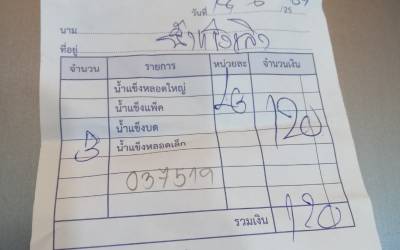 วันที่ /25
นาม
ที่อยู่
จำนวน รายการ หน่วยละ จำนวนเงิน
น้ำแข็งหลอดใหญ่
น้ำแข็งแพ็ค
น้ำแข็งบด
120
3 น้ำแข็งหลอดเล็ก
037519
รวมเงิน 120